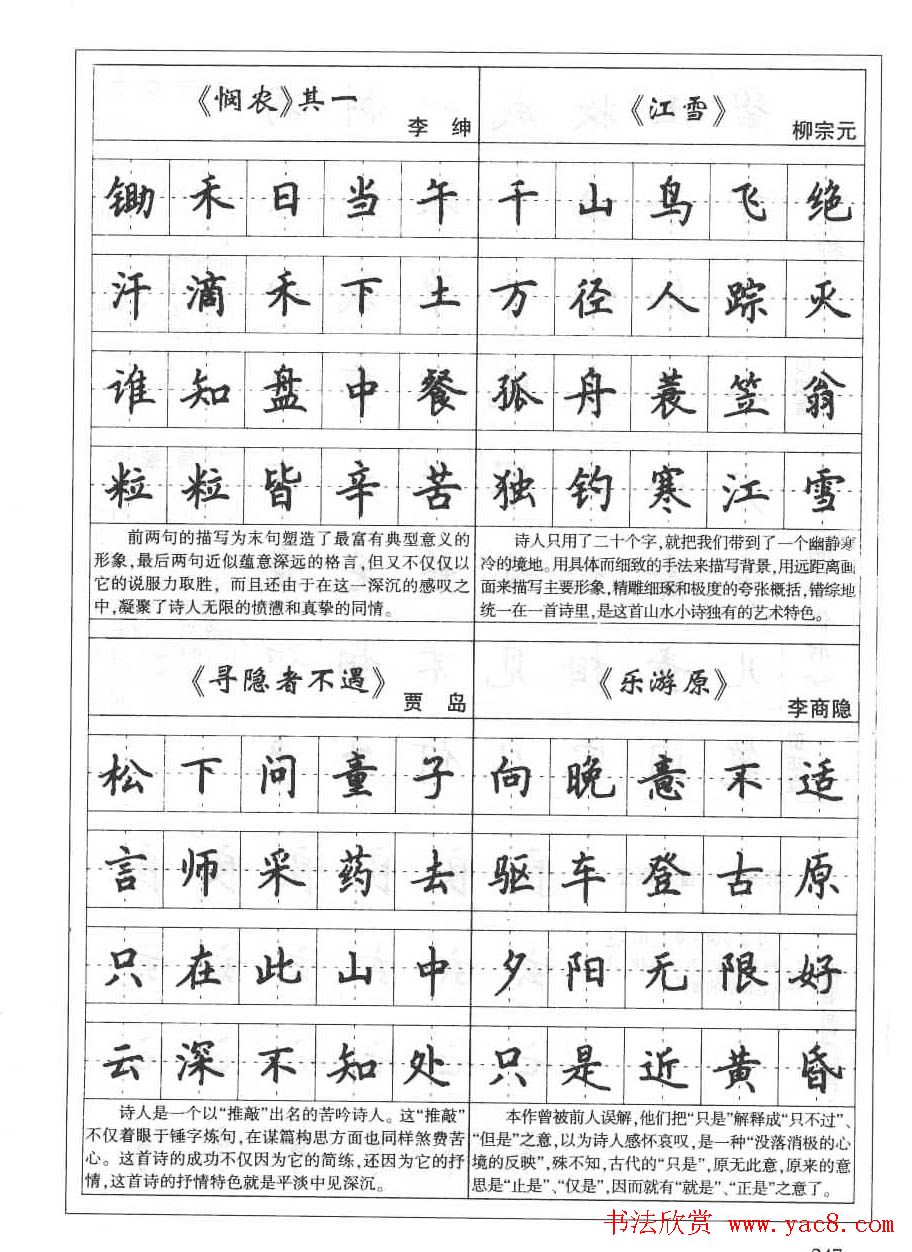 《悯农》其一
李 绅
锄禾日当午
汗滴禾下土
谁知盘中餐
粒粒皆辛苦
前两句的描写为末句塑造了最富有典型意义的
形象，最后两句近似蕴意深远的格言，但又不仅仅以
它的说服力取胜，而且还由于在这一深沉的感叹之
中，凝聚了诗人无限的愤懑和真挚的同情。
《江雪》
柳宗元
千山鸟飞绝
万径人踪灭
孤舟蓑笠翁
独钓寒江雪
诗人只用了二十个字，就把我们带到了一个幽静寒
冷的境地。用具体而细致的手法来描写背景，用远距离画
面来描写主要形象，精雕细琢和极度的夸张概括，错综地
统一在一首诗里，是这首山水小诗独有的艺术特色。
《寻隐者不遇》
贾 岛
松下问童子
言师采药去
只在此山中
云深不知处
诗人是一个以“推敲”出名的苦吟诗人。这“推敲”
不仅着眼于锤字炼句，在谋篇构思方面也同样煞费苦
心。这首诗的成功不仅因为它的简练，还因为它的抒
情，这首诗的抒情特色就是平淡中见深沉。
《乐游原》
李商隐
向晚意不适
驱车登古原
夕阳无限好
只是近黄昏
本作曾被前人误解，他们把“只是”解释成“只不过”、
“但是”之意，以为诗人感怀哀叹，是一种“没落消极的心
境的反映”，殊不知，古代的“只是”，原无此意，原来的意
思是“止是”、“仅是”，因而就有“就是”、“正是”之意了。
书法欣赏 www.yac8.com